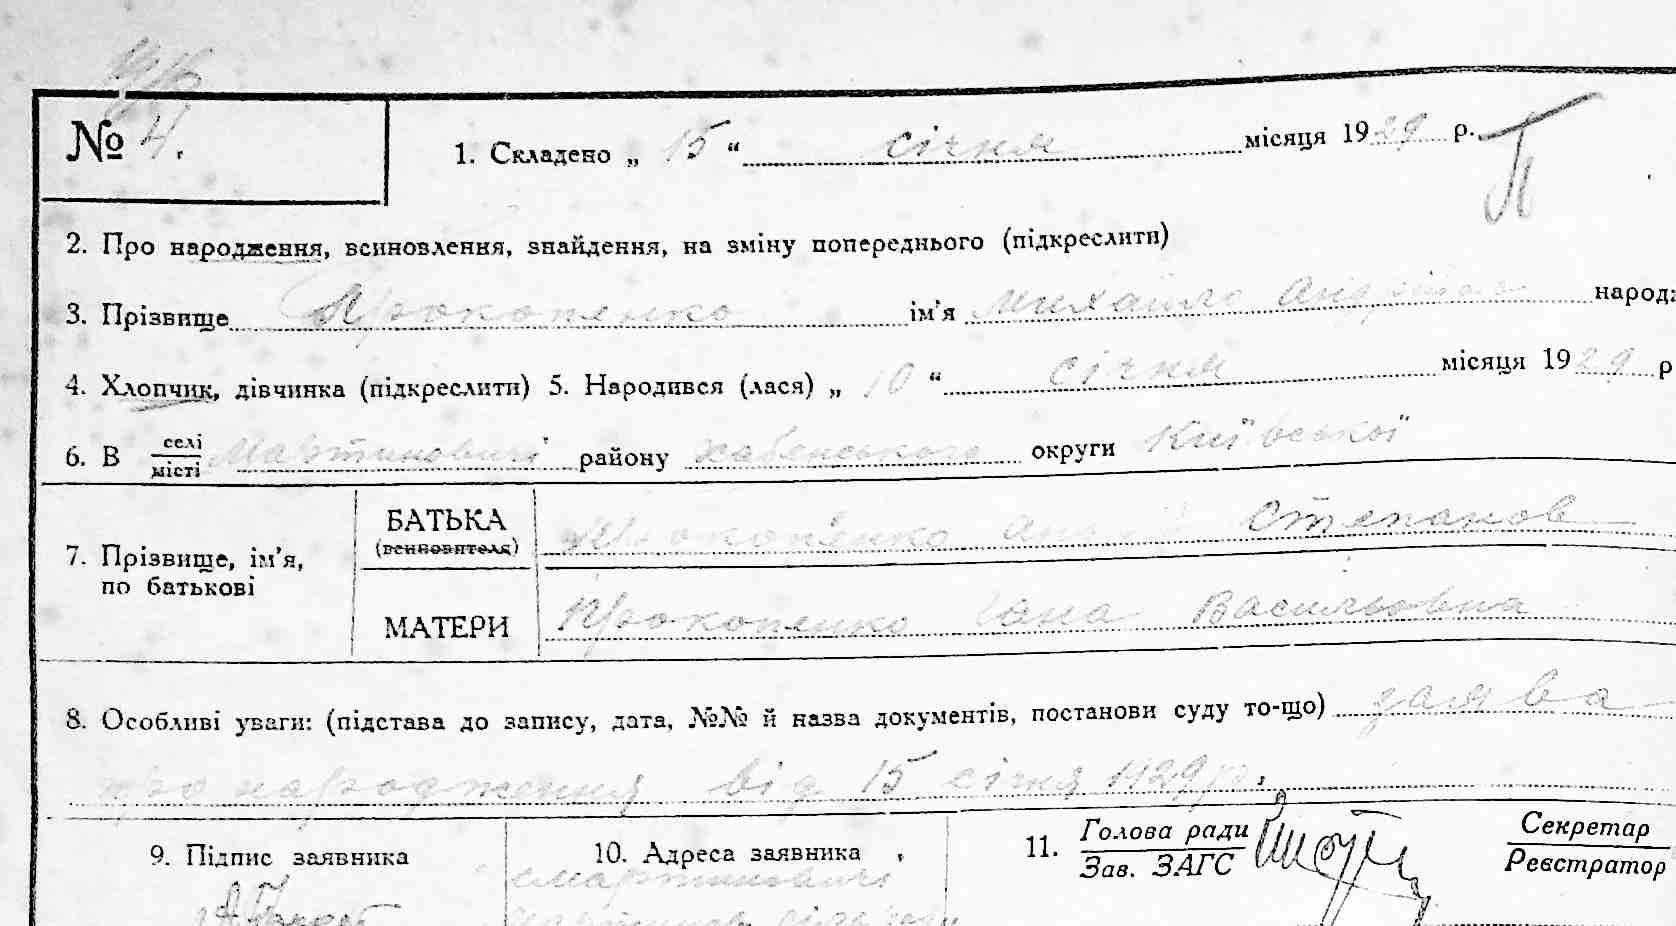 № 4.
1. Складено „ 15 “ січня місяця 1929 р. П
2. Про народження, всиновлення, знайдення, на зміну попереднього (підкреслити)
3. Прізвище Прокопенко ім'я Михайло народ
4. Хлопчик, дівчинка (підкреслити) 5. Народився (лася) „ 10 “ січня місяця 1929 р
6. В селі
місті Мартиновичі району Хабенського округи Київської
7. Прізвище, ім'я,
по батькові
БАТЬКА
(всиновителя)
Прокопенко Степанов
МАТЕРИ
Прокопенко Гана Васильовна
8. Особливі уваги: (підстава до запису, дата, №№ й назва документів, постанови суду то-що) заява
про народження від 15 січня 1929 р.
9. Підпис заявника
10. Адреса заявника
с. Мартиновичі
11. Голова ради
Зав. ЗАГС
Секретар
Реєстратор